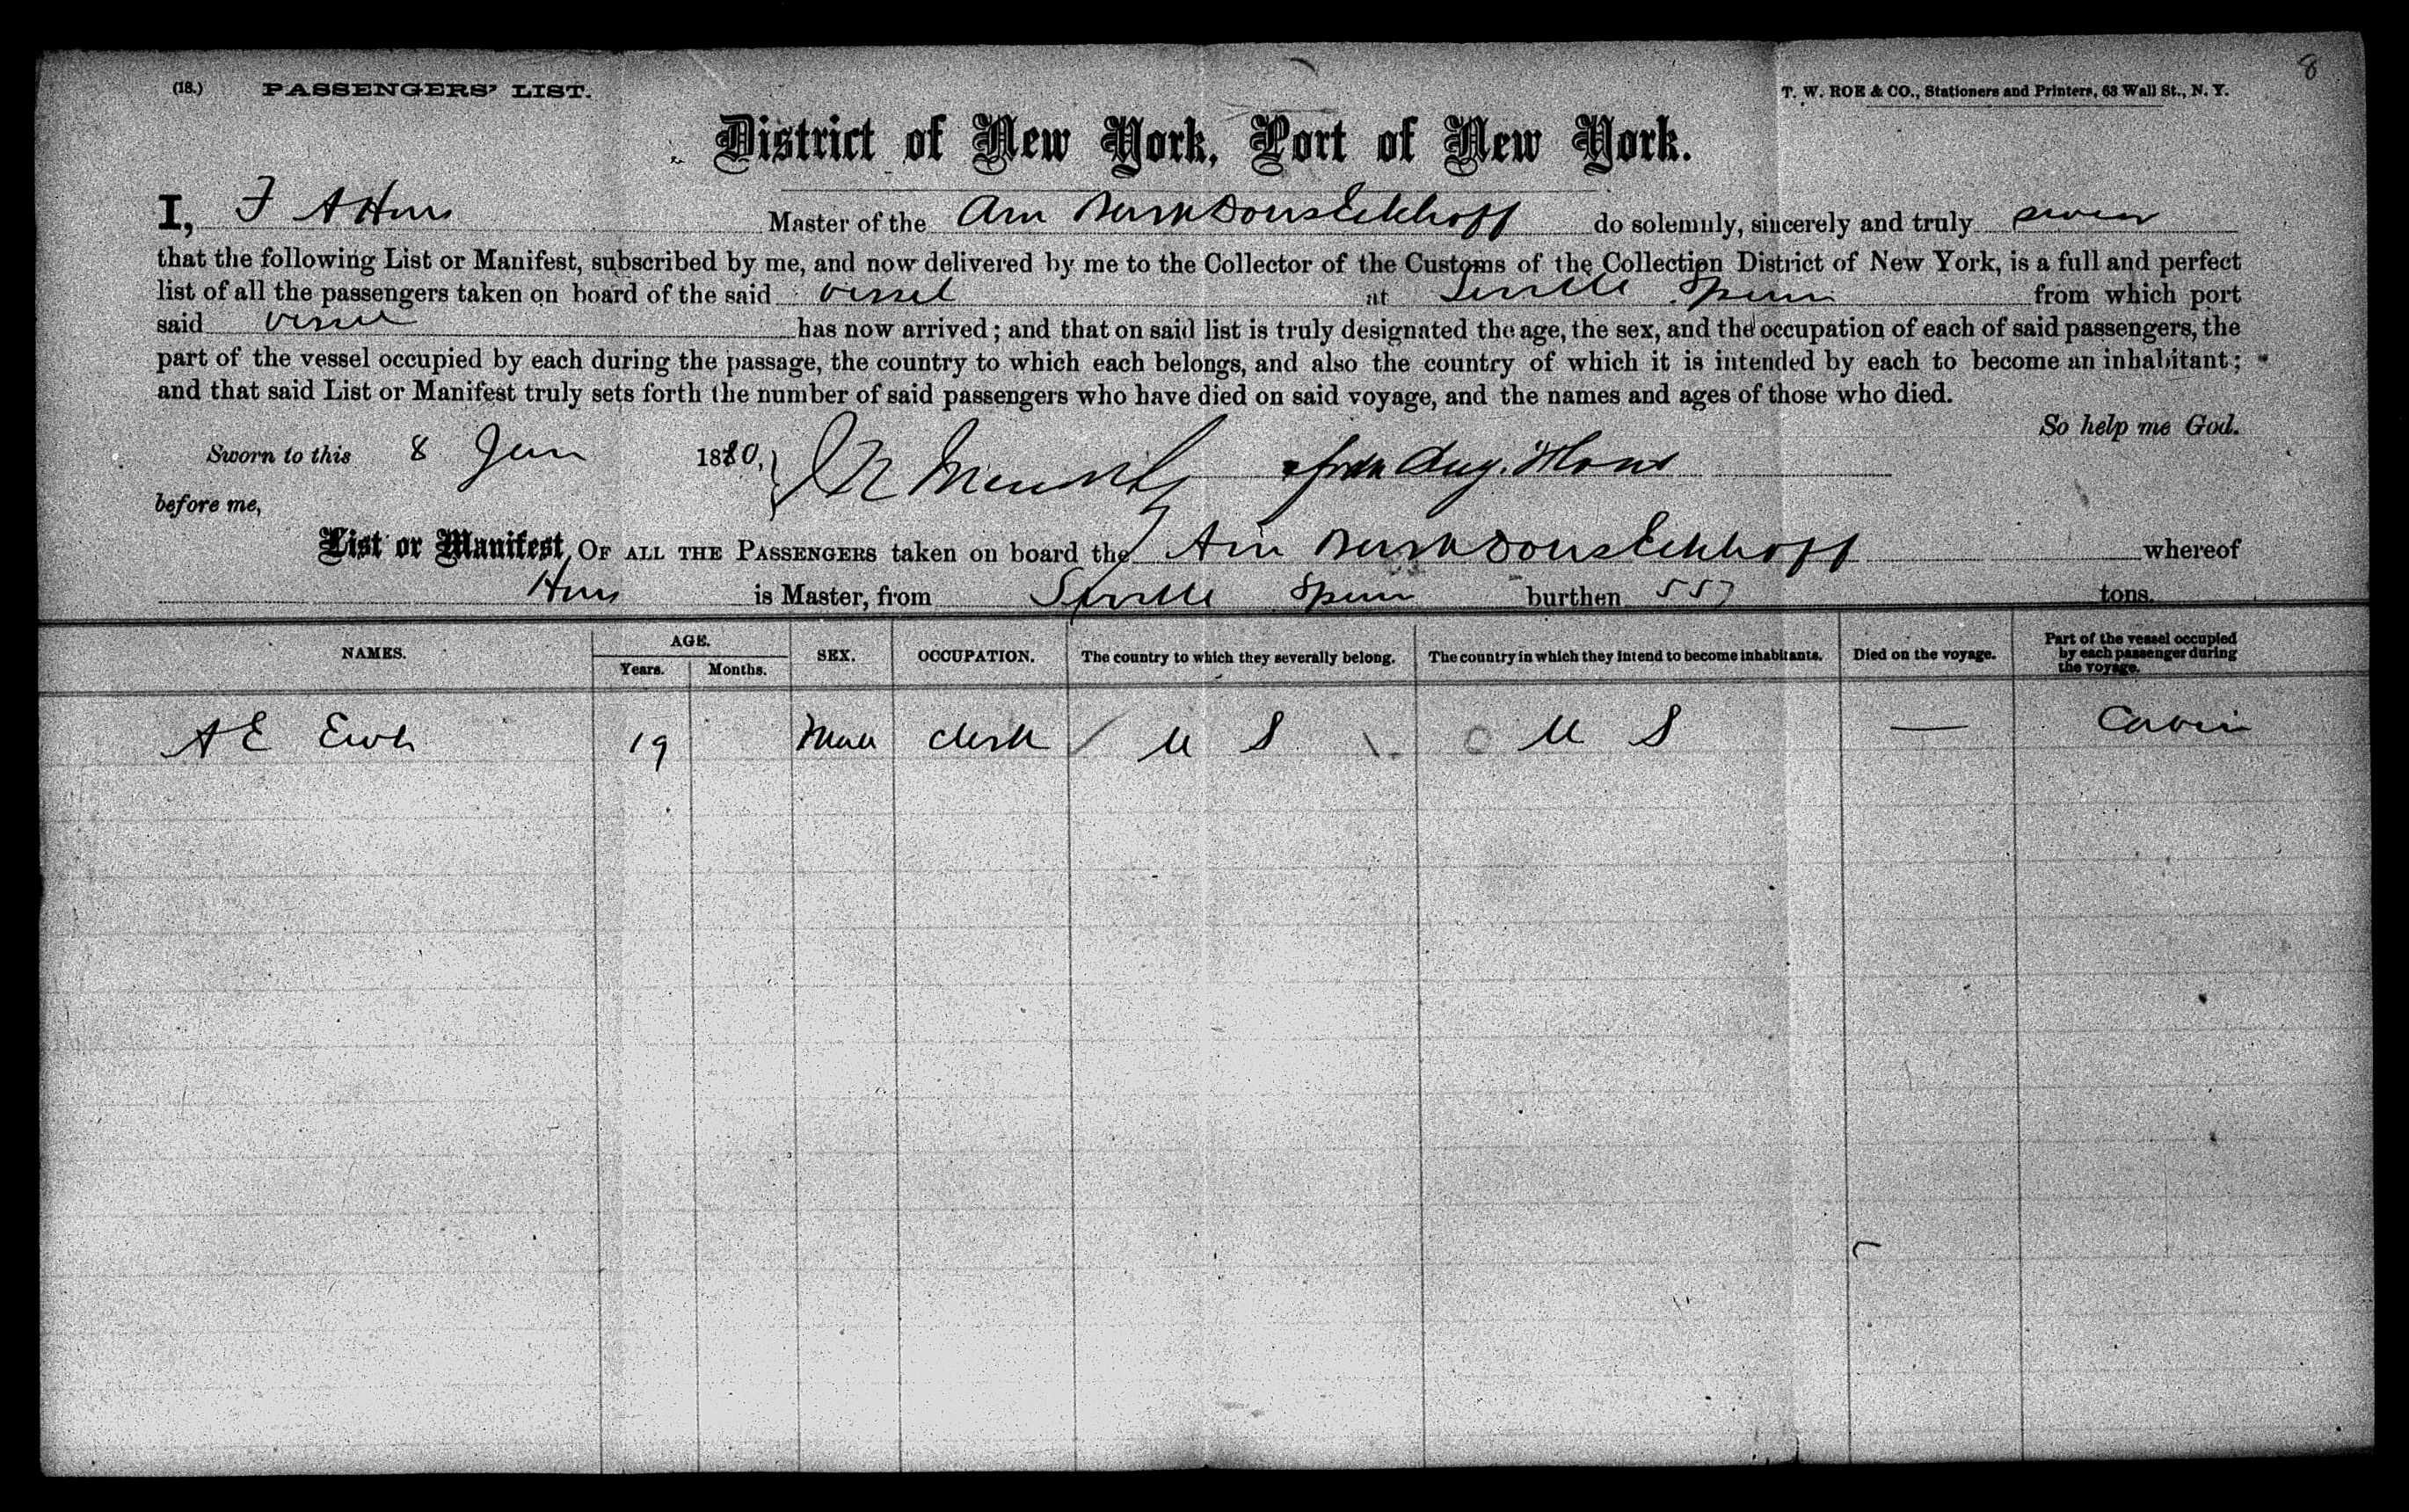 8
(18.) PASSENGERS' LIST. T. W. ROE & CO., Stationers and Printers, 63 Wall St., N. Y.
District of New York, Port of New York.
I, F A Master of the Am do solemnly, sincerely and truly swear
that the following List or Manifest, subscribed by me, and now delivered by me to the Collector of the Customs of the Collection District of New York, is a full and perfect
list of all the passengers taken on board of the said vessel at Seville Spain from which port
said vessel has now arrived; and that on said list is truly designated the age, the sex, and the occupation of each of said passengers, the
part of the vessel occupied by each during the passage, the country to which each belongs, and also the country of which it is intended by each to become an inhabitant;
and that said List or Manifest truly sets forth the number of said passengers who have died on said voyage, and the names and ages of those who died.
So help me God.
Sworn to this 8 Jan 1880, Aug.
before me,
List or Manifest, OF ALL THE PASSENGERS taken on board the Am whereof
is Master, from Seville Spain burthen 557 tons.
NAMES. AGE. SEX. OCCUPATION. The country to which they severally belong. The country in which they intend to become inhabitants. Died on the voyage. Part of the vessel occupied by each passenger during the voyage.
Years. Months.
A E 19 Male Clerk U S U S — Cabin